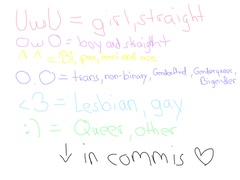 UwU = girl, straight
OwO = boy and straight
^ ^ = Bi, pan, omni and ace
O O = trans, non-binary, Genderfluid, Genderqueer, Bigender
<3 = Lesbian, gay
:) = Queer, other
↓ in commis ♡